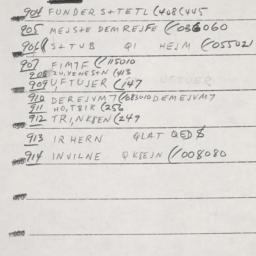 904 FUNDER S+TETL (408(445
905 MEJS+E DEM REJFE (/036060
906 S+TUB QI HEJM (/055021
907 FIMIF (/115010
908 ZU,VENES+N (413
909 UFTUJER (/147
910 DEREJVM7 (/083010 DEMEJVM7
911 HO,TBIK (256
912 TRI,NKSEN (249
913 IR HERN GLAT QED 8
914 IN VILNE QKSEJN (/008080